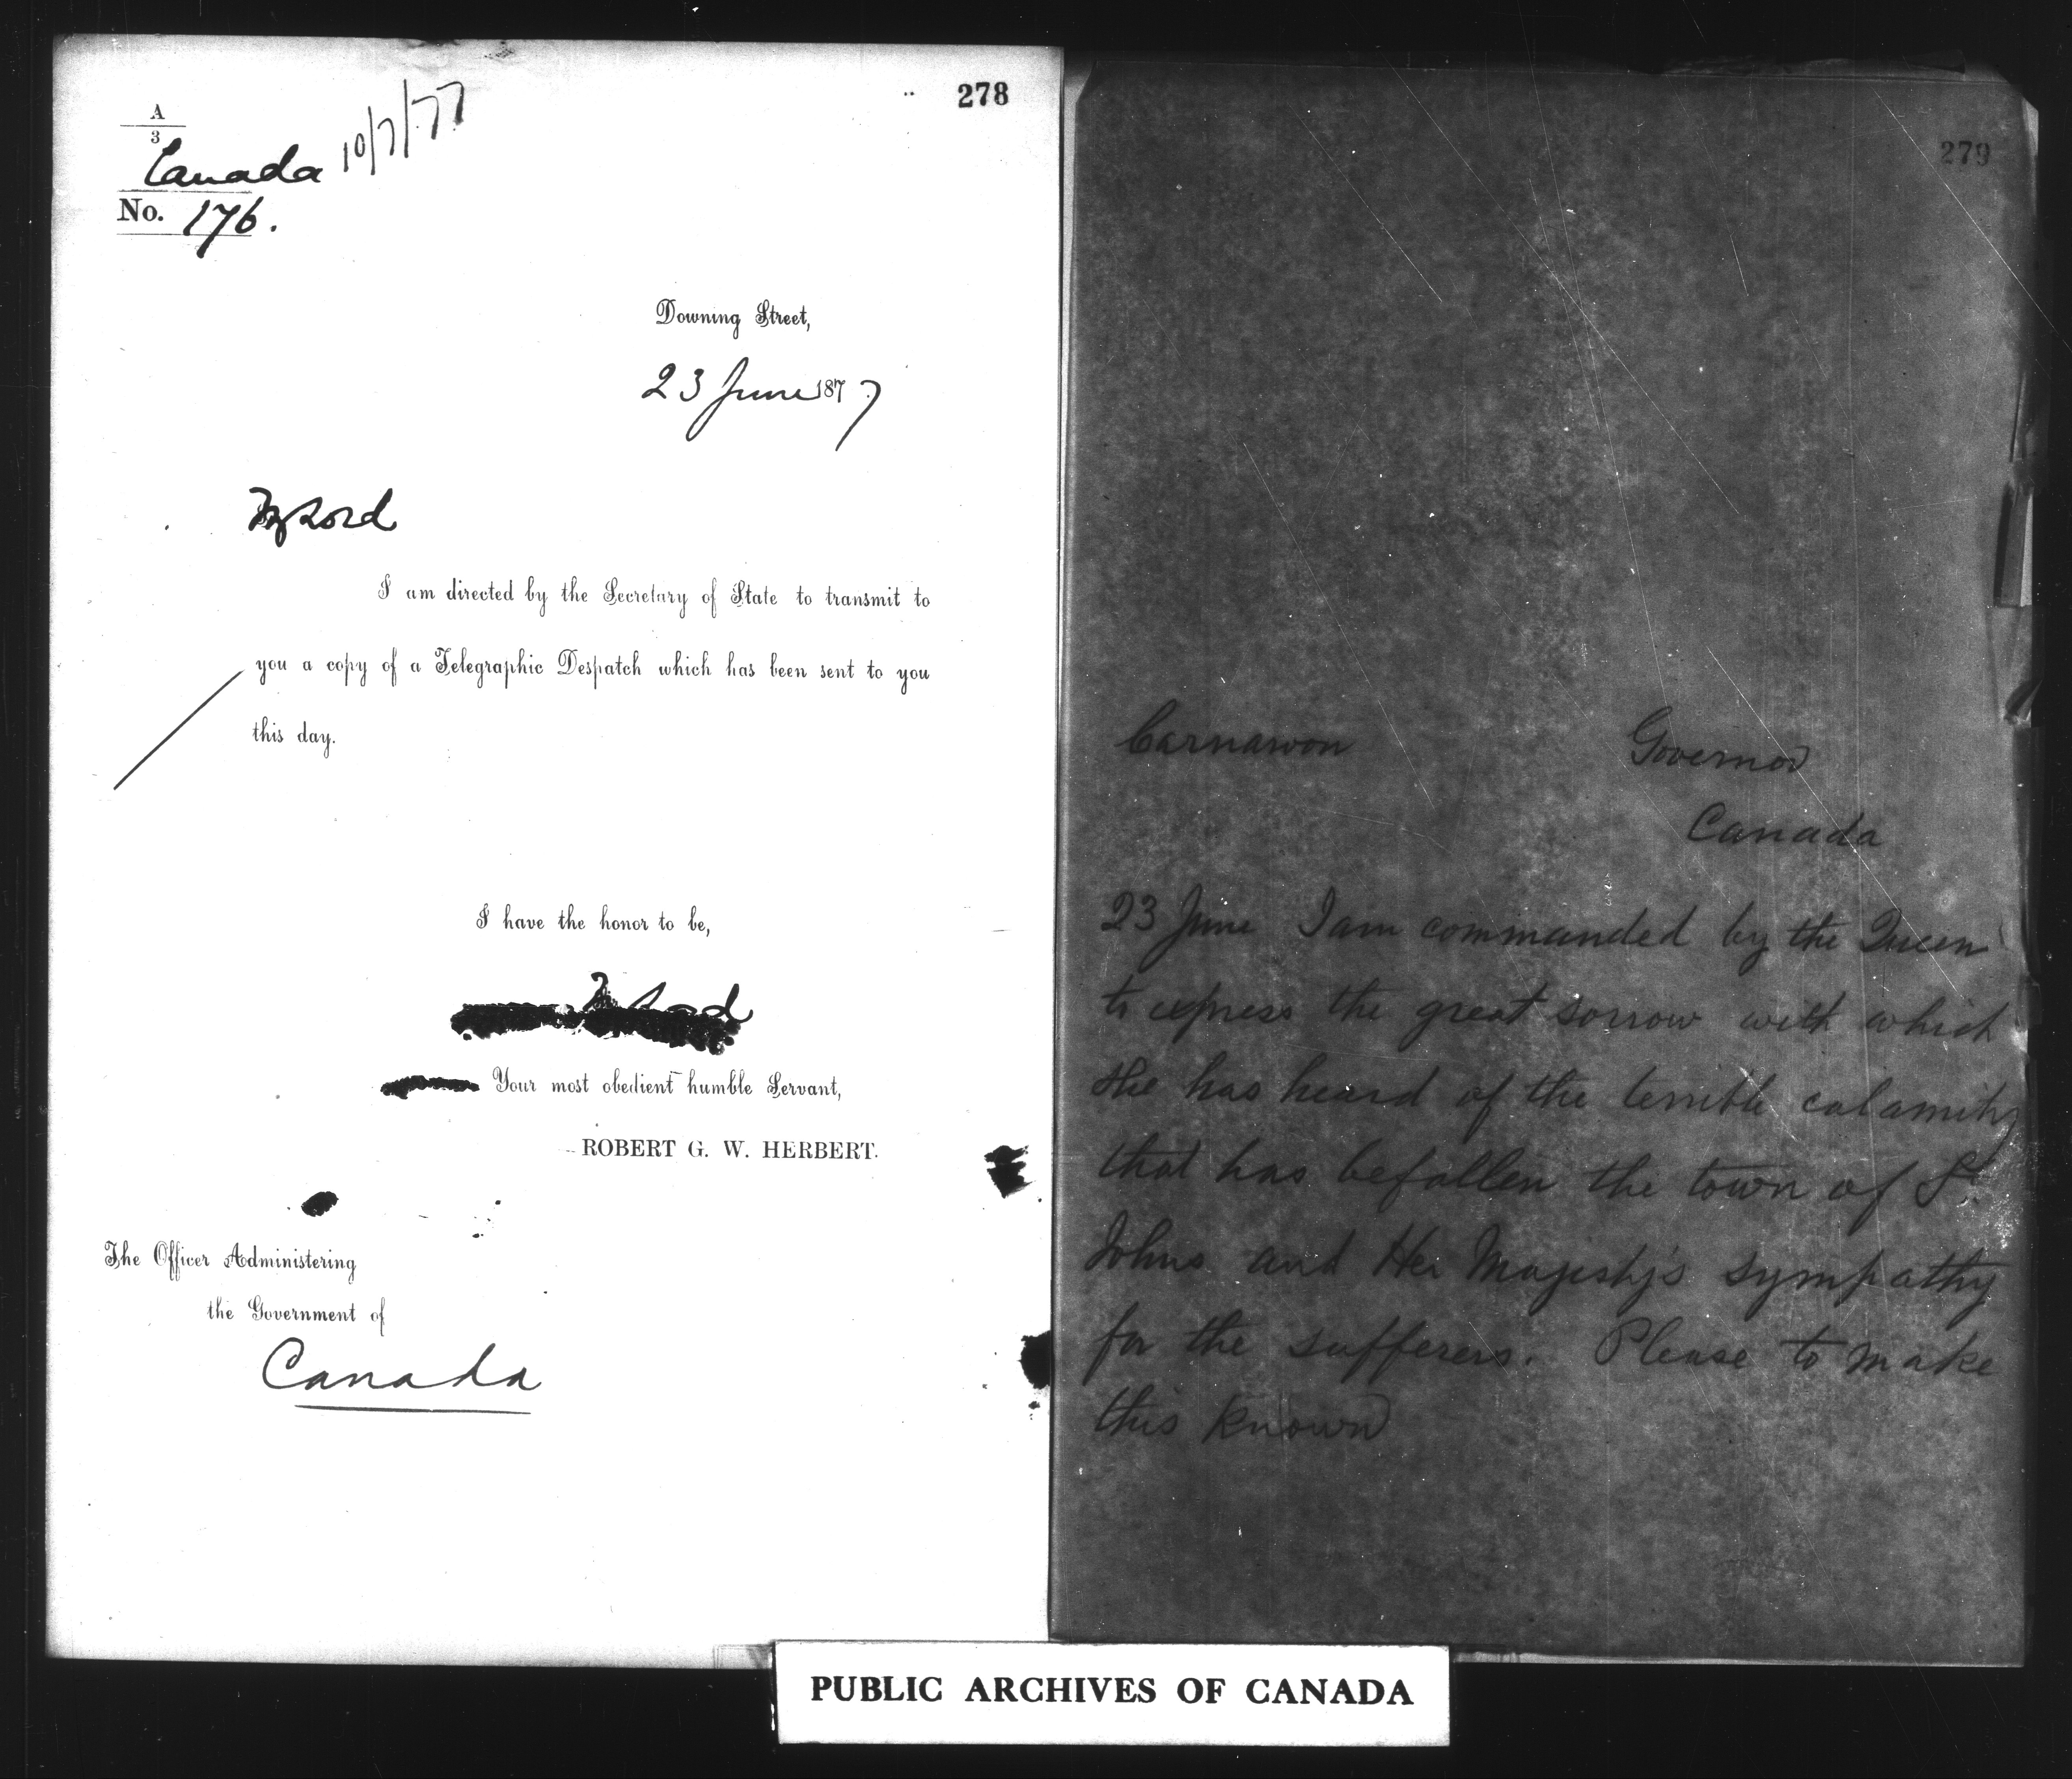 278
A
3
Canada 10/7/77
No. 176.
Downing Street,
23 June 1877
My Lord
I am directed by the Secretary of State to transmit to
you a copy of a Telegraphic Despatch which has been sent to you
this day.
I have the honor to be,
My Lord
Your most obedient humble Servant,
ROBERT G. W. HERBERT.
The Officer Administering
the Government of
Canada
279
Carnarvon Governor
Canada
23 June I am commanded by the Queen
to express the great sorrow with which
She has heard of the terrible calamity
that has befallen the town of St
Johns and Her Majesty's sympathy
for the sufferers. Please to make
this known
PUBLIC ARCHIVES OF CANADA